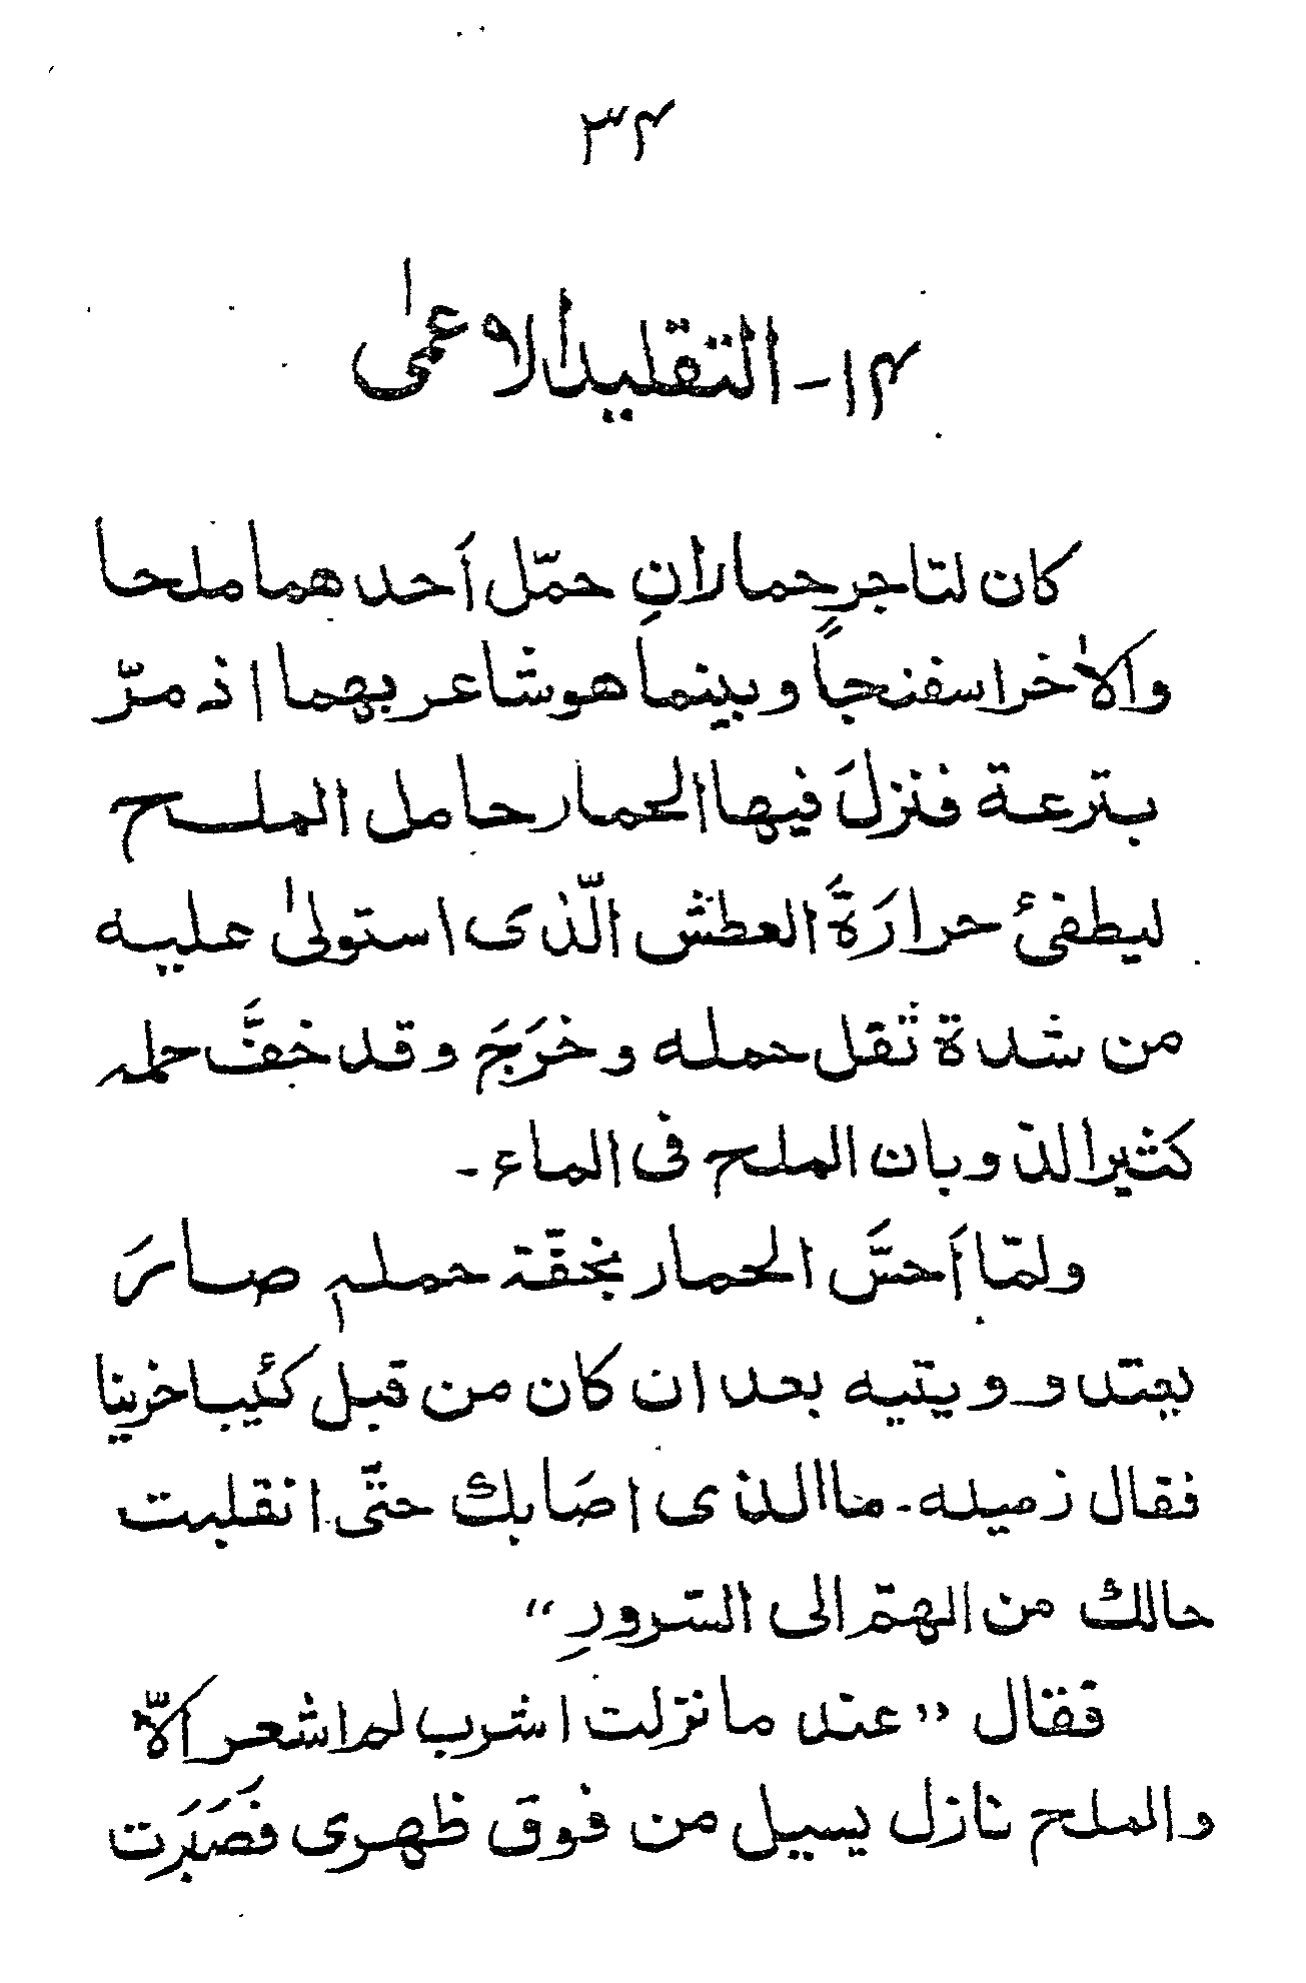 ۳۴
۱۴- التقليد الاعمىٰ
كان لتاجرٍ حمارانِ حمّل أحدهما ملحا
والاٰخر اسفنجاً وبينما هو شاعر بهما اذ مرّ
بترعة فنزلَ فيها الحمار حامل الملح
ليطفئ حرارَةَ العطش الّذى استولىٰ عليه
من شدة ثقل حمله وخرَجَ وقد خفَّ حمله
كثيرا لذوبان الملح فى الماء -
ولمّا أحسَّ الحمار بخفّة حملهٖ صارَ
يعتد وويتيه بعد ان كان من قبل كئيبا خزينا
فقال زميله - ما الذى اصَابك حتّى انقلبت
حالك من الهمّ الى السّرورِ “
ققال ” عند ما نزلت اشرب لم اشعر الاّ
والملح نازل يسيل من فوق ظهرى فصَبَرَت